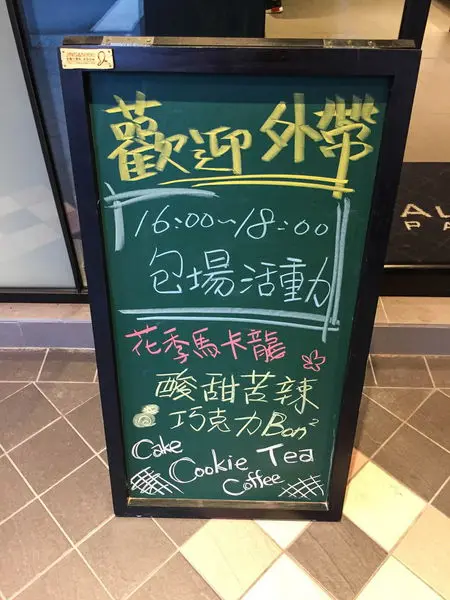 歡迎外帶
16:00~18:00
包場活動
花季馬卡龍
酸甜苦辣
巧克力Bon²
Cake
Cookie Tea
Coffee